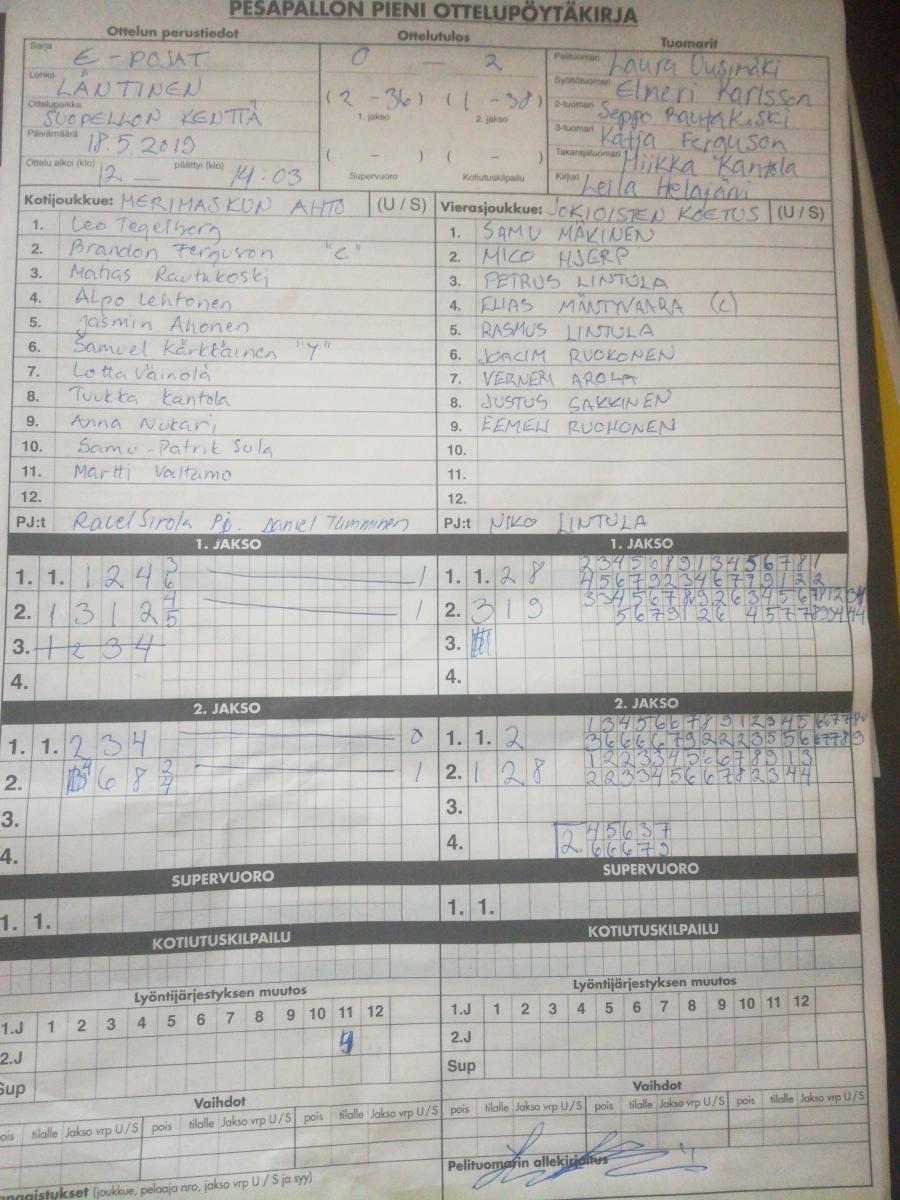 PESÄPALLON PIENI OTTELUPÖYTÄKIRJA
Ottelun perustiedot
Sarja E-POJAT
Lohko LÄNTINEN
Ottelupaikka SUOPELLON KENTTÄ
Päivämäärä 18.5.2019
Ottelu alkoi (klo) 12 — päättyi (klo) 14:03
Ottelutulos
0 — 2
(2 - 36) (1 - 38)
1. jakso 2. jakso
( - ) ( - )
Supervuoro Kotiutuskilpailu
Tuomarit
Pelituomari Laura Uusimäki
Syöttötuomari Elmeri Karlsson
2-tuomari Seppo Rautakoski
3-tuomari Katja Ferguson
Takarajatuomari Miikka Kantola
Kirjuri Leila Helajärvi
Kotijoukkue: MERIMASKUN AHTO (U / S)
1. Leo Tegelberg
2. Brandon Ferguson "C"
3. Matias Rautakoski
4. Alpo Lehtonen
5. Jasmin Ahonen
6. Samuel Kärkkäinen "Y"
7. Lotta Väinölä
8. Tuukka Kantola
9. Anna Nukari
10. Samu-Patrik Sula
11. Martti Valtamo
12.
PJ:t Sirola Pj. Daniel Tamminen
Vierasjoukkue: JOKIOISTEN KOETUS (U / S)
1. SAMU MÄKINEN
2. MICO HJERP
3. PETRUS LINTULA
4. ELIAS MÄNTYVAARA (C)
5. RASMUS LINTULA
6. JOACIM RUOKONEN
7. VERNERI AROLA
8. JUSTUS SAKKINEN
9. EEMELI RUOHONEN
10.
11.
12.
PJ:t NIKO LINTULA
1. JAKSO
1. 1. 1 2 4 3 6 1
2. 1 3 1 2 4 5 1
3. 1 2 3 4
4.
1. JAKSO
1. 1. 2 8
2. 3 1 9
3.
4.
2. JAKSO
1. 1. 2 3 4 0
2. 6 8 1
3.
4.
2. JAKSO
1. 1. 2
2. 1 2 8 1 2 2 3 3 4 5 6 6 7 8 9 1 3
2 2 3 3 4 5 6 6 7 8 2 3 4 4
3.
4. 2. 4 5 6 3 7
6 6 6 7 9
SUPERVUORO
1. 1.
SUPERVUORO
1. 1.
KOTIUTUSKILPAILU
KOTIUTUSKILPAILU
Lyöntijärjestyksen muutos
1.J 1 2 3 4 5 6 7 8 9 10 11 12
2.J
Sup
Lyöntijärjestyksen muutos
1.J 1 2 3 4 5 6 7 8 9 10 11 12
2.J
Sup
Vaihdot
pois tilalle Jakso vrp U / S pois tilalle Jakso vrp U / S pois tilalle Jakso vrp U / S
Vaihdot
pois tilalle Jakso vrp U / S pois tilalle Jakso vrp U / S pois tilalle Jakso vrp U / S
Pelituomarin allekirjoitus
(joukkue, pelaaja nro, jakso vrp U / S ja syy)